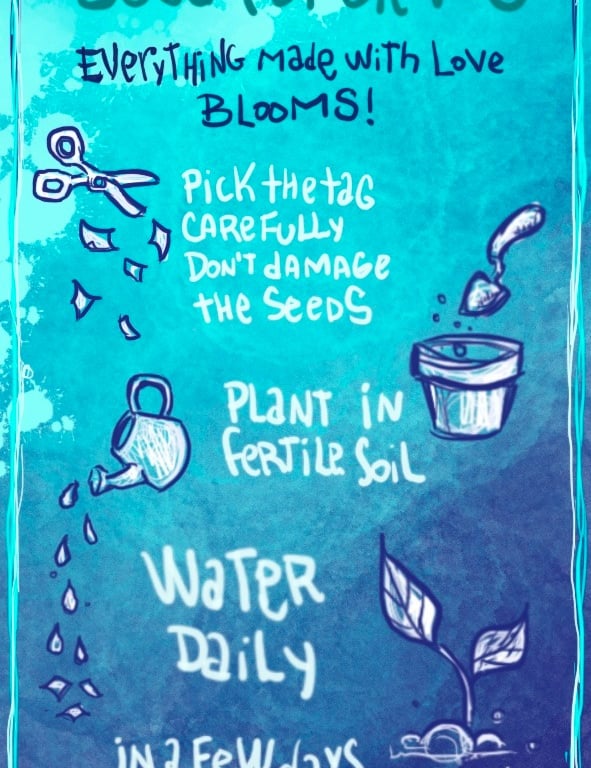 EVERYTHiNG made with Love
BLooMS!
PicK the tag
CAREFULLY
DON'T dAMAGE
the SeedS
PLANT iN
FERTiLE SoiL
WaTER
DaiLy
iN a FeW days